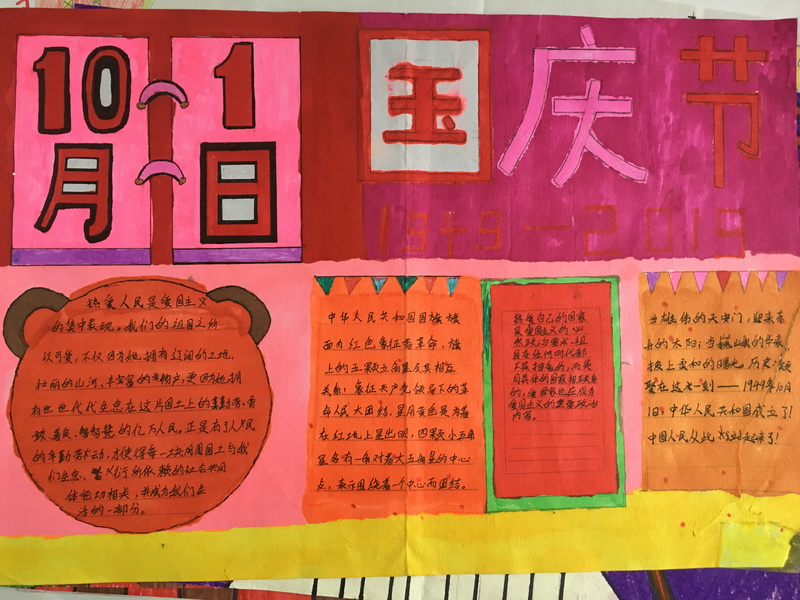 10月
1日
国庆节
1949—2019
热爱人民是爱国主义
的集中表现。我们的祖国之所
以可爱,不仅因为她拥有辽阔的土地、
壮丽的山河、丰富的物产,更因为她拥
有世世代代生息在这片国土上的勤劳、勇
敢、善良、智慧的亿万人民。正是有了人民
的辛勤劳动,方使得每一块周围国土与我
们生息、繁行所依赖的社会共同
体密切相关,并成为我们生
活的一部分。
中华人民共和国国旗旗
面为红色象征着革命,旗
上的五颗五角星及其相互
关系,象征共产党领导下的革
命人民大团结,星用黄色是为着
在红地上显出明,四颗小五角
星各有一角对着大五角星的中心
点,表示围绕着一个中心而团结。
热爱自己的国家
是爱国主义的必
然政治要求。祖
国在任何时代都
不是抽象的,而是
同具体的国家相联系
的,爱国家也正成为
爱国主义的重要政治
内容。
当雄伟的天安门,迎来东
升的太阳;当巍峨的华表,
披上柔和的曙光,历史
聚在这一刻——1949年10月
1日,中华人民共和国成立了!
中国人民从此站起来了!